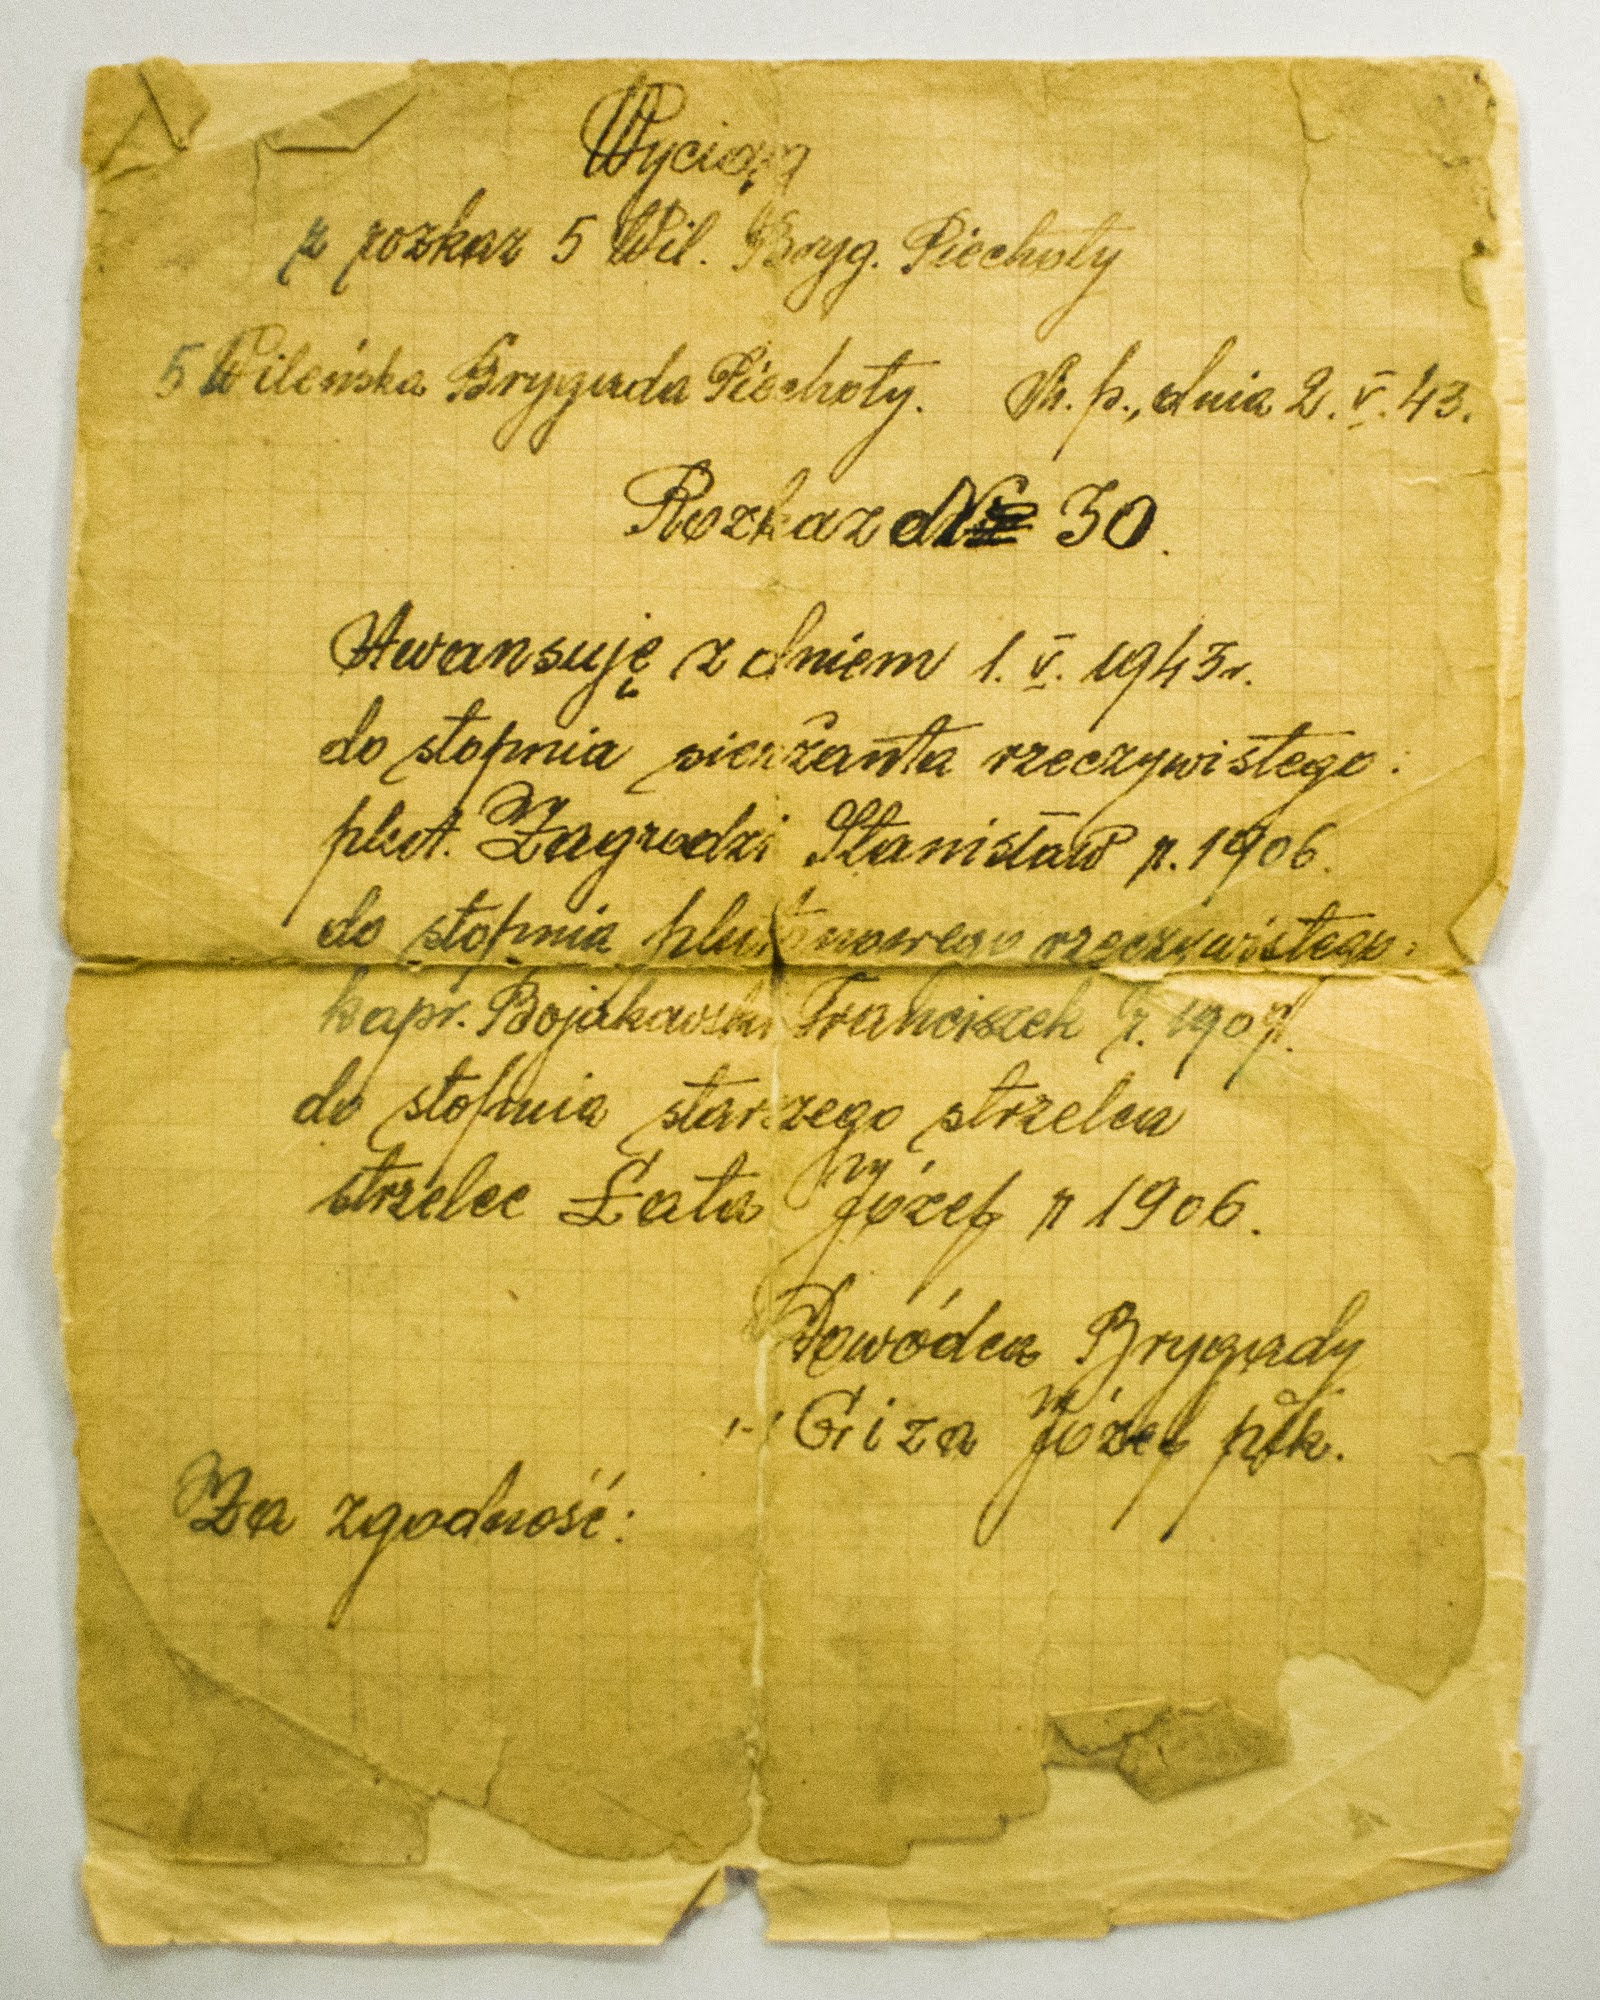 Wyciąg
z rozkaz 5 Wil. Bryg. Piechoty
5 Wileńska Brygada Piechoty. M. p., dnia 2.V.43.
Rozkaz Nr 30.
Awansuję z dniem 1.V.1943r.
do stopnia sierżanta rzeczywistego:
plut. Zagrodzki Stanisław r. 1906.
do stopnia plutonowego rzeczywistego:
kapr. Bojakowski Franciszek r.
do stopnia starszego strzelca
strzelec Łata Józef r 1906.
Dowódca Brygady
/-/ Giza Józef płk.
Za zgodność: